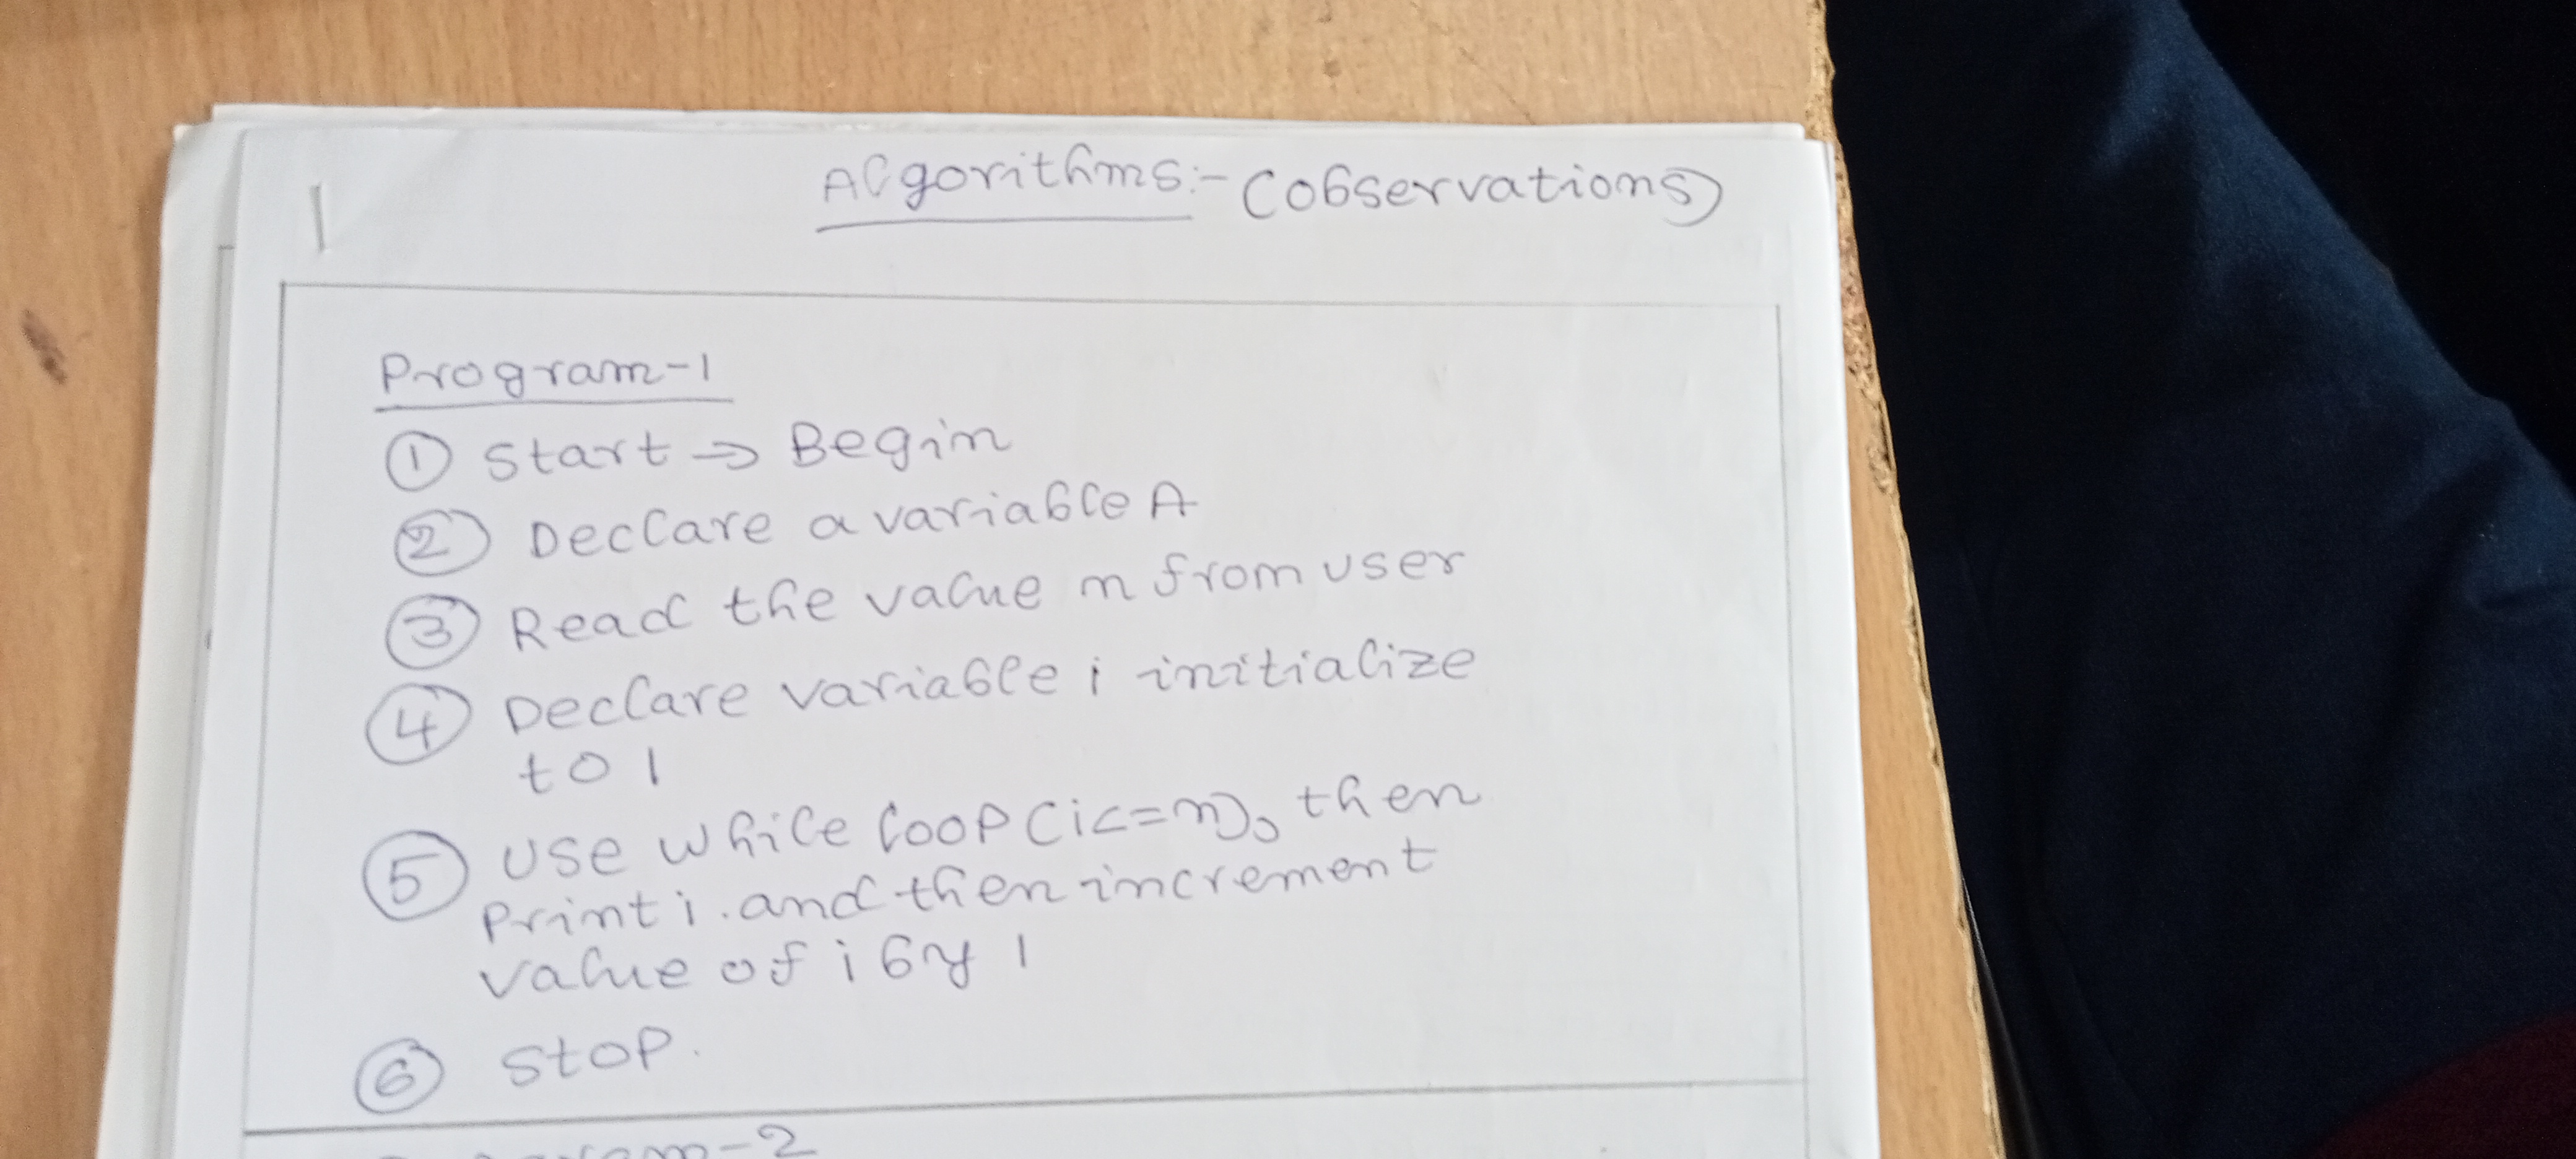 1
Algorithms:- (observations)
Program-1
① Start ⇒ Begin
② Declare a variable A
③ Read the value n from user
④ Declare variable i initialize
to 1
⑤ Use while loop (i<=n), then
print i. and then increment
value of i by 1
⑥ Stop.
-2